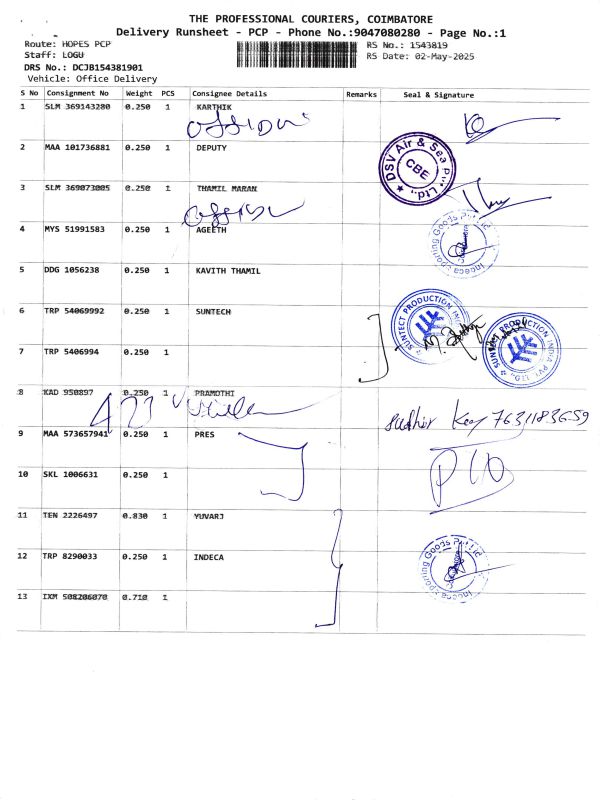 THE PROFESSIONAL COURIERS, COIMBATORE
Delivery Runsheet - PCP - Phone No.:9047080280 - Page No.:1
Route: HOPES PCP RS No.: 1543819
Staff: LOGU RS Date: 02-May-2025
DRS No.: DCJB154381901
Vehicle: Office Delivery
S No Consignment No Weight PCS Consignee Details Remarks Seal & Signature
1 SLM 369143280 0.250 1 KARTHIK
2 MAA 101736881 0.250 1 DEPUTY
DSV Air & Sea Pvt. Ltd., CBE
3 SLM 369073005 0.250 1 THAMIL MARAN
4 MYS 51991583 0.250 1 AGEETH
5 DDG 1056238 0.250 1 KAVITH THAMIL
6 TRP 54069992 0.250 1 SUNTECH
SUNTECT PRODUCTION
SUNTECT PRODUCTION INDIA PVT. LTD.,
7 TRP 5406994 0.250 1
8 KAD 950897 0.250 1 PRAMOTHI
9 MAA 573657941 0.250 1 PRES
10 SKL 1006631 0.250 1
11 TEN 2226497 0.830 1 YUVARJ
12 TRP 8290033 0.250 1 INDECA
13 IXM 508206070 0.710 1